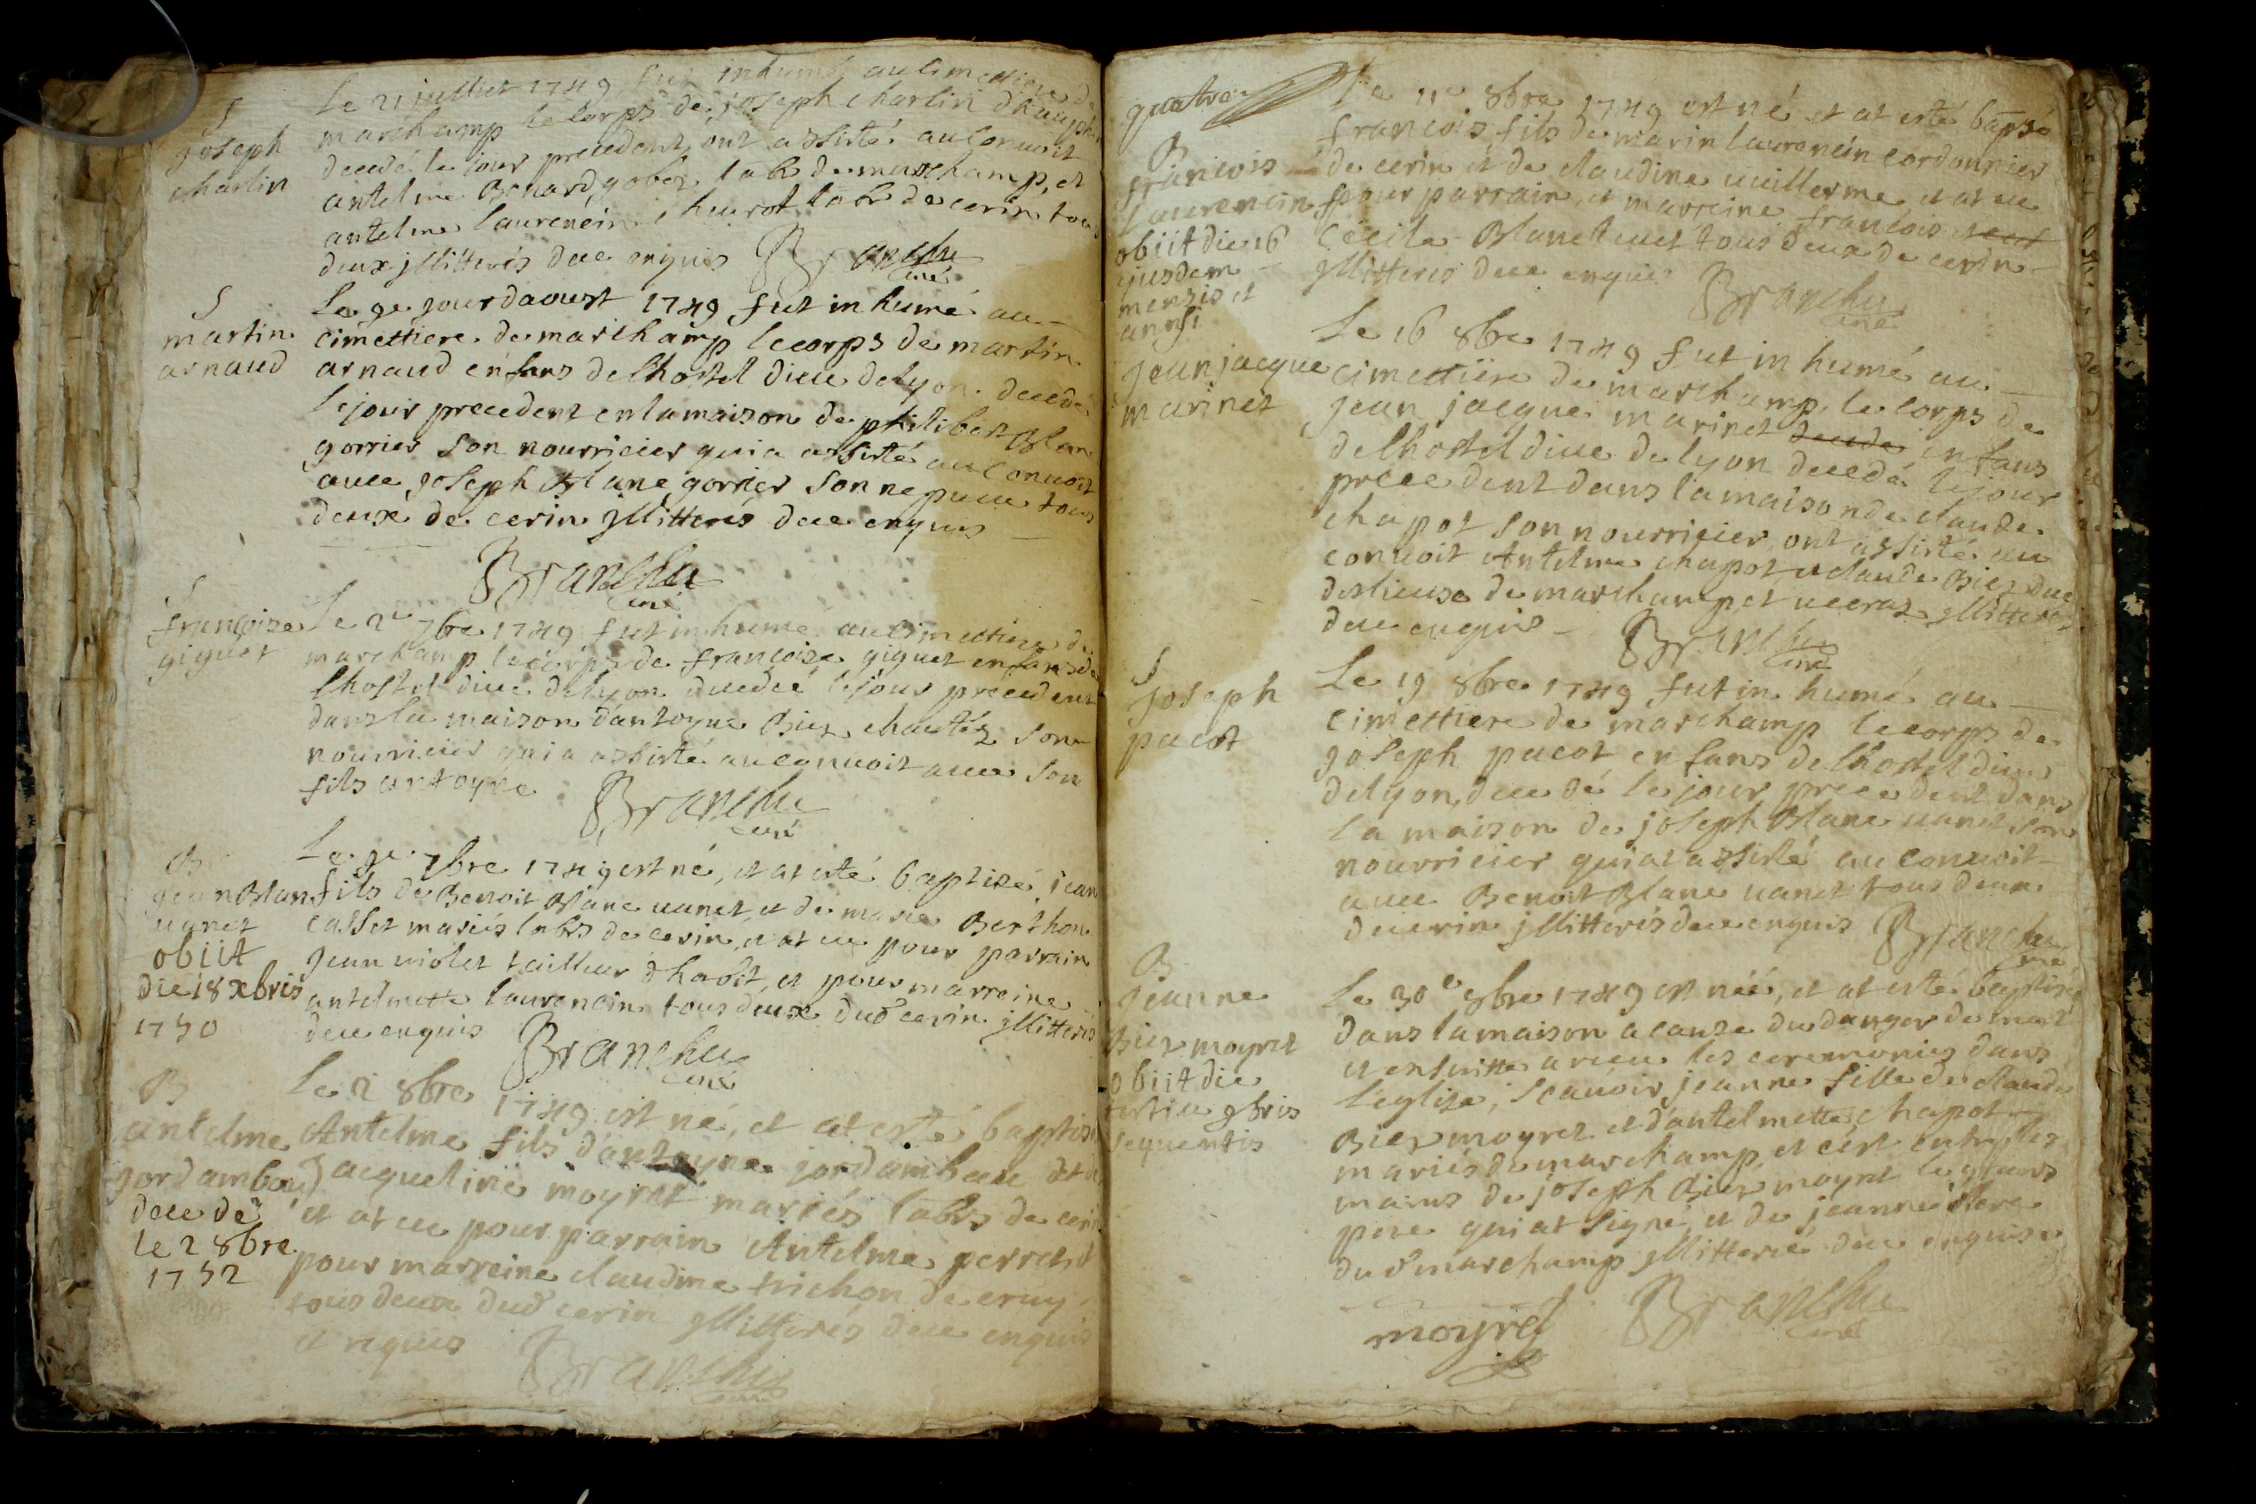 S
joseph
charlin
Le 21 juillet 1749 fut inhumé au cimettiere de
marchamp le corps de joseph charlin
decedé le jour precedent, ont assisté au convoit
antelme Benard gobez labr de marchamp, et
antelme laurencin labr de cerin tous
deux jllitterés deue enquis Branchu
curé
S
martin
arnaud
Le 9e jour daoust 1749 fut inhumé au
cimettiere de marchamp le corps de martin
arnaud enfans de lhostel dieu de lyon decedé
le jour precedent en la maison de philibert Blanc
gorrier son nourricier qui a assisté au convoit
avec joseph Blanc gorrier son nepueu tous
deux de cerin jllitterés deue enquis
Branchu
curé
S
françoise
giguet
Le 2e 7bre 1749 fut inhumé au cimettiere de
marchamp le corps de françoise giguet enfans de
lhostel dieu de lyon decedée le jour precedent
dans la maison dantoyne Biez son
nourricier qui a assisté au convoit avec son
fils antoyne Branchu
curé
B
jean Blanc
uanet
obiit
die 18 xbris
1750
Le 9e 7bre 1749 est né, et at esté baptizé jean
fils de Benoit Blanc uanet, et de marie Berthon
casset mariés labrs de cerin, et at eu pour parrain
jean uiolet tailleur dhabit, et pour marreine
antelmette laurencin tous deux dud cerin jllitterés
deue enquis Branchu
curé
B
antelme
jordambau
decedé
le 2 8bre
1752
Le 2 8bre 1749 est né, et at esté baptisé
Antelme fils dantoyne jordambau et de
jacqueline moyret mariés labrs de cerin
et at eu pour parrain Antelme perret
pour marreine claudine trichon de cruy
tous deux dud cerin jllitterés deue enquis
et requis Branchu
curé
quatre
B
francois
laurencin
obiit die 16
ejusdem
mensis et
anni
Le 11e 8bre 1749 est né et at esté baptisé
francois fils de marin laurencin cordonnier
de cerin et de claudine uuillerme et at eu
pour parrain, et marreine francois et
Cécile Blanc uuet tous deux de cerin
jllitterés deue enquis Branchu
curé
jean jacque
marinet
Le 16 8bre 1749 fut inhumé au
cimettiere de marchamp, le corps de
jean jacque marinet decedé enfans
de lhostel dieu de lyon decedé le jour
precedent dans la maison de claude
chapot son nourricier, ont assisté au
convoit Antelme chapot, et claude Biez
des lieux de marchamp et jllitterés
deue enquis Branchu
curé
S
joseph
pacot
Le 19 8bre 1749 fut inhumé au
cimettiere de marchamp le corps de
joseph pacot enfans de lhostel dieu
de lyon, decedé le jour precedent dans
la maison de joseph Blanc uanet son
nourricier qui at assisté au convoit
avec Benoit Blanc uanet tous deux
de cerin jllitterés deue enquis Branchu
curé
B
jeanne
Biez moyret
obiit die
tertia 9bris
sequentis
Le 30e 8bre 1749 est néé, et at esté baptisée
dans la maison a cause du danger de mort
et ensuitte a receu les ceremonies dans
leglise, scauoir jeanne fille de claude
Biez moyret et dantelmette chapot
mariés de marchamp, et cest entre les
mains de joseph Biez moyret le grand
pere qui at signé, et de jeanne
dud marchamp jllitterée deue enquise
moyret Branchu
curé